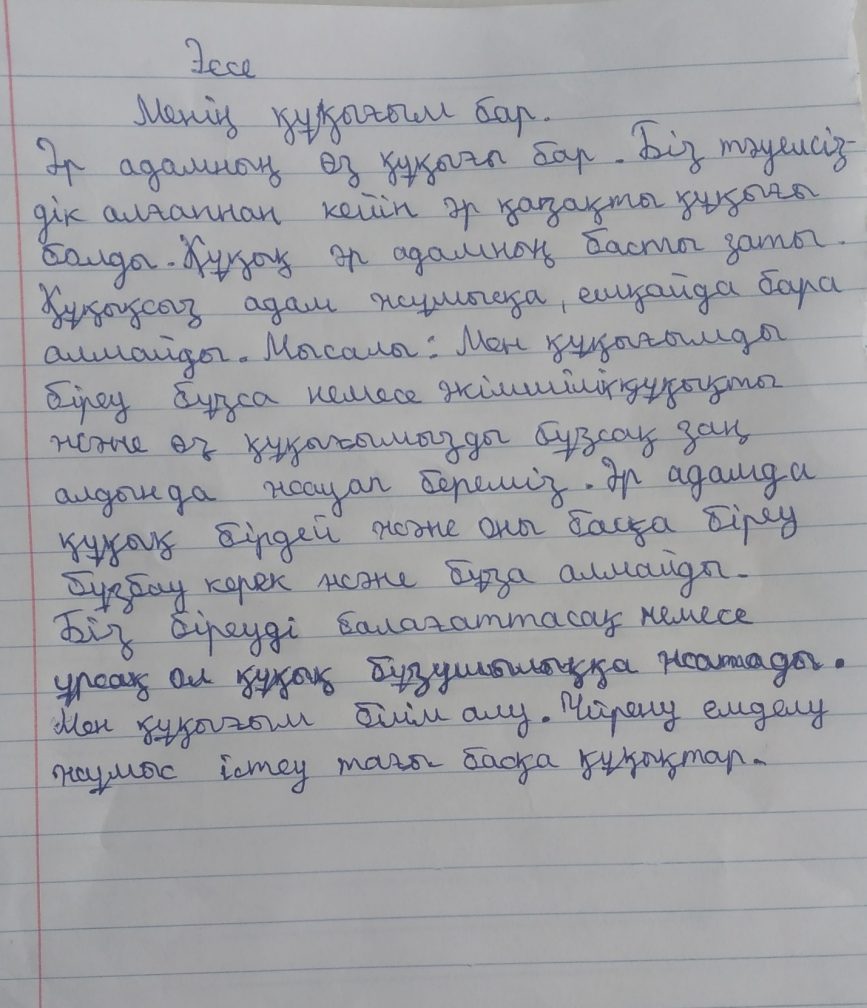 Эссе
Менің құқығым бар.
Әр адамның өз құқығы бар. Біз тәуелсіз-
дік алғаннан кейін әр қазақты құқығы
болды. Құқық әр адамның басты заты.
Құқықсыз адам жұмысқа, ешқайда бара
алмайды. Мысалы: Мен құқығымды
біреу бұзса немесе әкімшілік құқықты
және өз құқығымызды бұзсақ заң
алдында жауап береміз. Әр адамда
құқық бірдей және оны басқа біреу
бұзбау керек және бұза алмайды.
Біз біреуді балағаттасақ немесе
ұрсақ ол құқық бұзушылыққа жатады.
Мен құқығым білім алу. Үйрену емделу
жұмыс істеу тағы басқа құқықтар.